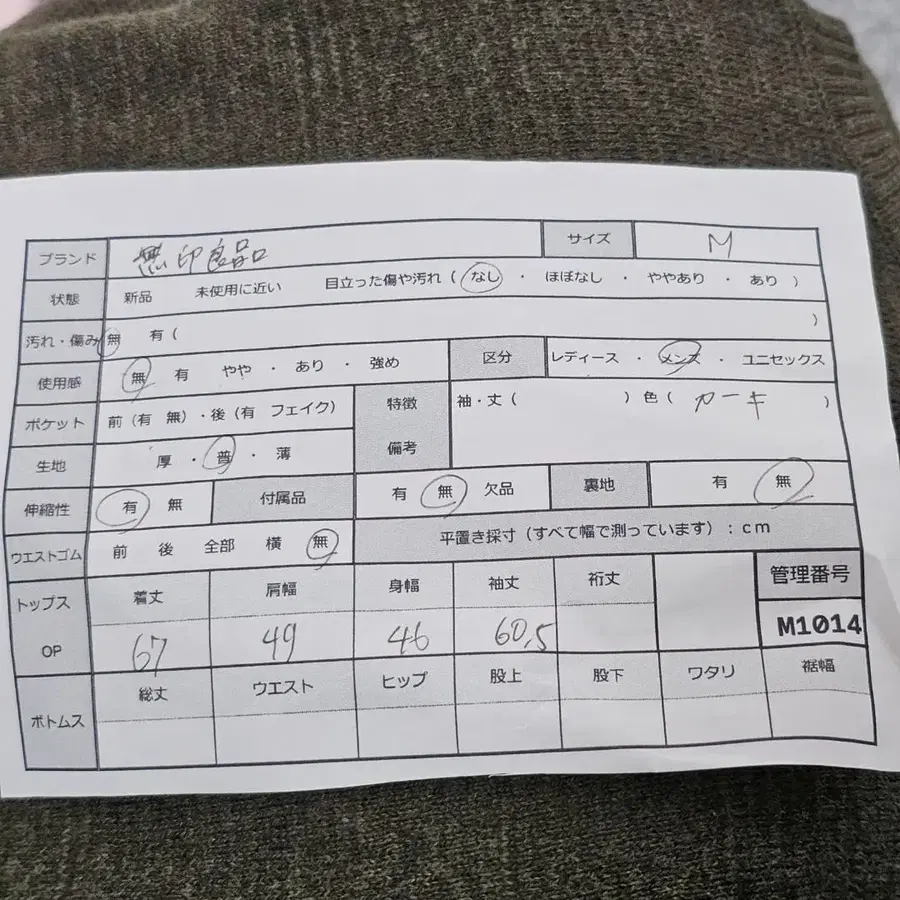 ブランド 無印良品 サイズ M
状態 新品 未使用に近い 目立った傷や汚れ ( なし ・ ほぼなし ・ ややあり ・ あり )
汚れ・傷み 無 有 ( )
使用感 無 有 やや ・ あり ・ 強め 区分 レディース ・ メンズ ・ ユニセックス
ポケット 前 (有 無) ・後 (有 フェイク) 特徴 袖・丈 ( ) 色 ( カーキ )
備考
生地 厚 ・ 普 ・ 薄
伸縮性 有 無 付属品 有 無 欠品 裏地 有 無
ウエストゴム 前 後 全部 横 無 平置き採寸 (すべて幅で測っています) : cm
トップス 着丈 肩幅 身幅 袖丈 裄丈 管理番号
OP 67 49 46 60.5 M1014
ボトムス 総丈 ウエスト ヒップ 股上 股下 ワタリ 裾幅